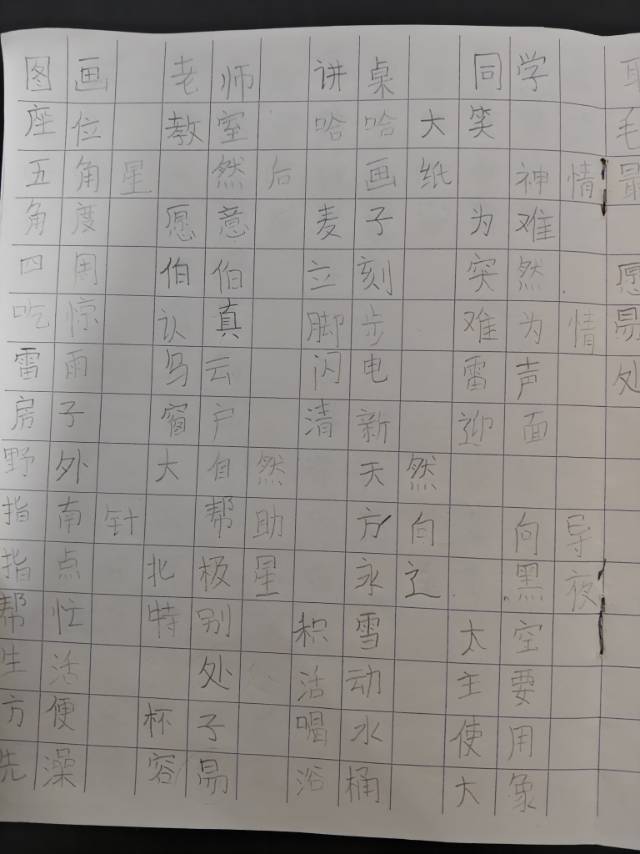 图画 老师 讲桌 同学
座位 教室 哈哈大笑 毛
五角星 然后 画纸 神情
角度 愿意 麦子 为难
四周 伯伯 立刻 突然 愿
吃惊 认真 脚步 难为情 易
雷雨 乌云 闪电 雷声 处
房子 窗户 清新 迎面
野外 大自然 天然
指南针 帮助 方向 向导
指点 北极星 永 黑夜
帮忙 特别 积雪 太空
生活 处 活动 主要
方便 杯子 喝水 使用
洗澡 容易 浴桶 大象